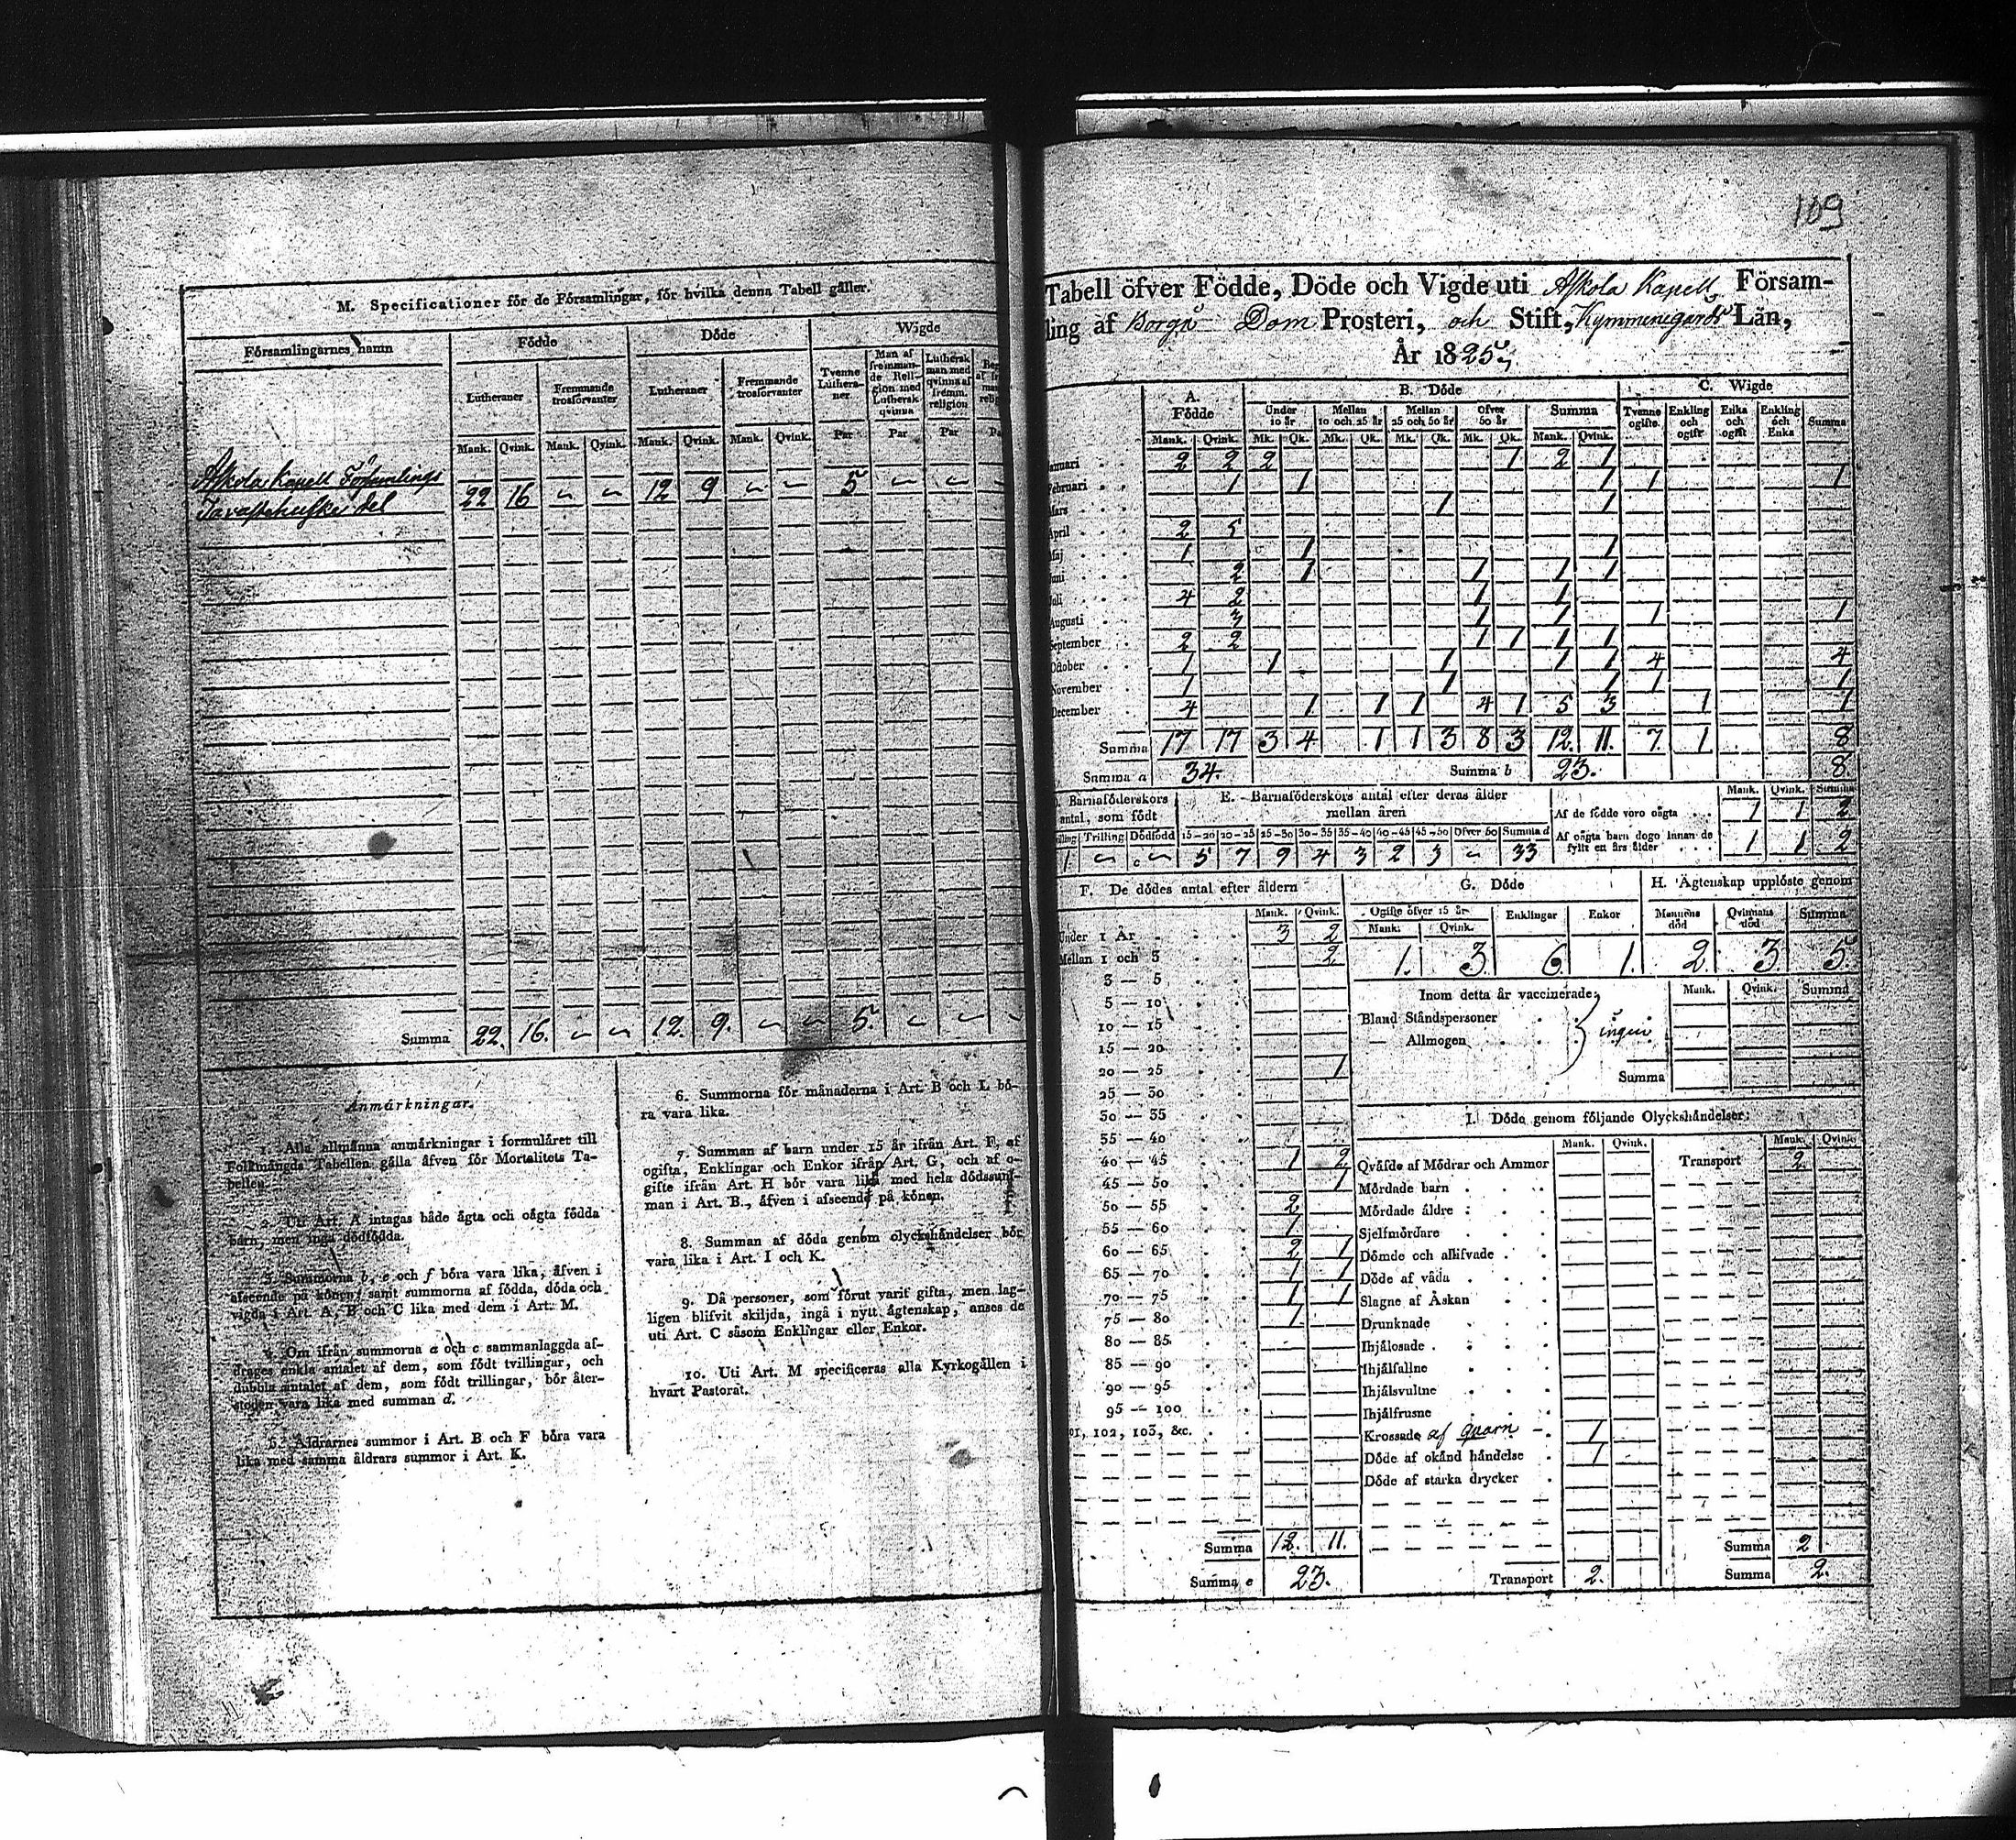 M. Specificationer för de Församlingar, för hvilka denna Tabell gäller.
Församlingarnes namn
Födde
Döde
Wigde
Lutheraner
Fremmande trosförvanter
Lutheraner
Fremmande trosförvanter
Tvenne Lutheraner
Man af fremmande Religion med Luthersk qvinna
Luthersk man med qvinna af fremm. religion
Mank. Qvink. Mank. Qvink. Mank. Qvink. Mank. Qvink. Par Par Par
Askola Kapell Församlings
Tavastehuske del 22 16 ~ ~ 12 9 ~ ~ 5 ~ ~
Summa 22. 16. ~ ~ 12. 9. ~ ~ 5. ~ ~ ~
Anmärkningar.
1. Alla allmänna anmärkningar i formuläret till
Folkmängds Tabellen gälla äfven för Mortalitets Ta-
bellen.
2. Uti Art. A intagas både ägta och oägta födda
barn, men inga dödfödda.
3. Summorna b, e och f böra vara lika, äfven i
afseende på könen, samt summorna af födda, döda och
vigda i Art. A, B och C lika med dem i Art. M.
4. Om ifrån summorna a och c sammanlaggda af-
drages enkla antalet af dem, som födt tvillingar, och
dubbla antalet af dem, som födt trillingar, bör åter-
stoden vara lika med summan d.
5. Åldrarnes summor i Art. B och F böra vara
lika med samma åldrars summor i Art. K.
6. Summorna för månaderna i Art. B och L bö-
ra vara lika.
7. Summan af barn under 15 år ifrån Art. F, af
ogifta, Enklingar och Enkor ifrån Art. G, och af o-
gifte ifrån Art. H bör vara lika med hela dödssum-
man i Art. B., äfven i afseende på könen.
8. Summan af döda genom olyckshändelser bör
vara lika i Art. I och K.
9. Då personer, som förut varit gifta, men lag-
ligen blifvit skiljda, ingå i nytt ägtenskap, anses de
uti Art. C såsom Enklingar eller Enkor.
10. Uti Art. M specificeras alla Kyrkogällen i
hvart Pastorat.
109
Tabell öfver Födde, Döde och Vigde uti Askola Kapell Försam-
ling af Borgå Dom Prosteri, och Stift, Kymmenegårds Län,
År 1825,
A. Födde
B. Döde
C. Wigde
Under 10 år
Mellan 10 och 25 år
Mellan 25 och 50 år
Öfver 50 år
Summa
Tvenne ogifte
Enkling och ogift
Enka och ogift
Enkling och Enka
Summa
Mank. Qvink. Mk. Qk. Mk. Qk. Mk. Qk. Mk. Qk. Mank. Qvink.
anuari 2 2 2 1 2 1
Februari 1 1 1 1 1
Mars 1 1
April 2 5
Maj 1 1 1
uni 2 1 1 1 1
Juli 4 2 1 1
Augusti 3 1 1 1 1
September 2 2 1 1 1 1
October 1 1 1 1 1 4 4
November 1 1 1 1 1
December 4 1 1 1 4 1 5 3 1 1
Summa 17 17 3 4 1 1 3 8 3 12. 11. 7 1 8
Summa a 34. Summa b 23. 8.
Barnaföderskors antal, som födt
E. Barnaföderskors antal efter deras ålder mellan åren
Trilling Dödfödd 15-20 20-25 25-30 30-35 35-40 40-45 45-50 Öfver 50 Summa d
1 ~ ~ 5 7 9 4 3 2 3 ~ 33
Mank. Qvink. Summa
Af de födde voro oägta 1 1 2
Af oägta barn dogo innan de fyllt ett års ålder 1 1 2
F. De dödes antal efter åldern
Mank. Qvink.
Under 1 År 3 2
Mellan 1 och 3 2
3 — 5
5 — 10
10 — 15
15 — 20
20 — 25 1
25 — 30
30 — 35
35 — 40
40 — 45 1 2
45 — 50 1
50 — 55 2
55 — 60 1
60 — 65 2 1
65 — 70 1 1
70 — 75 1 1
75 — 80 1
80 — 85
85 — 90
90 — 95
95 — 100
101, 102, 103, &c.
Summa 12. 11.
Summa e 23.
G. Döde
Ogifte öfver 15 år
Mank. Qvink.
Enklingar
Enkor
1. 3. 6. 1.
H. Ägtenskap upplöste genom
Mannens död
Qvinnans död
Summa
2. 3. 5.
Inom detta år vaccinerade,
Mank. Qvink. Summa
Bland Ståndspersoner
— Allmogen
ingen
Summa
I. Döde genom följande Olyckshändelser:
Mank. Qvink. Mank. Qvink.
Qväfde af Mödrar och Ammor Transport 2
Mördade barn
Mördade äldre
Sjelfmördare
Dömde och aflifvade
Döde af våda
Slagne af Åskan
Drunknade
Ihjälosade
Ihjälfallne
Ihjälsvultne
Ihjälfrusne
Krossade af quarn 1
Döde af okänd händelse 1
Döde af starka drycker
Summa 2
Transport 2. Summa 2.